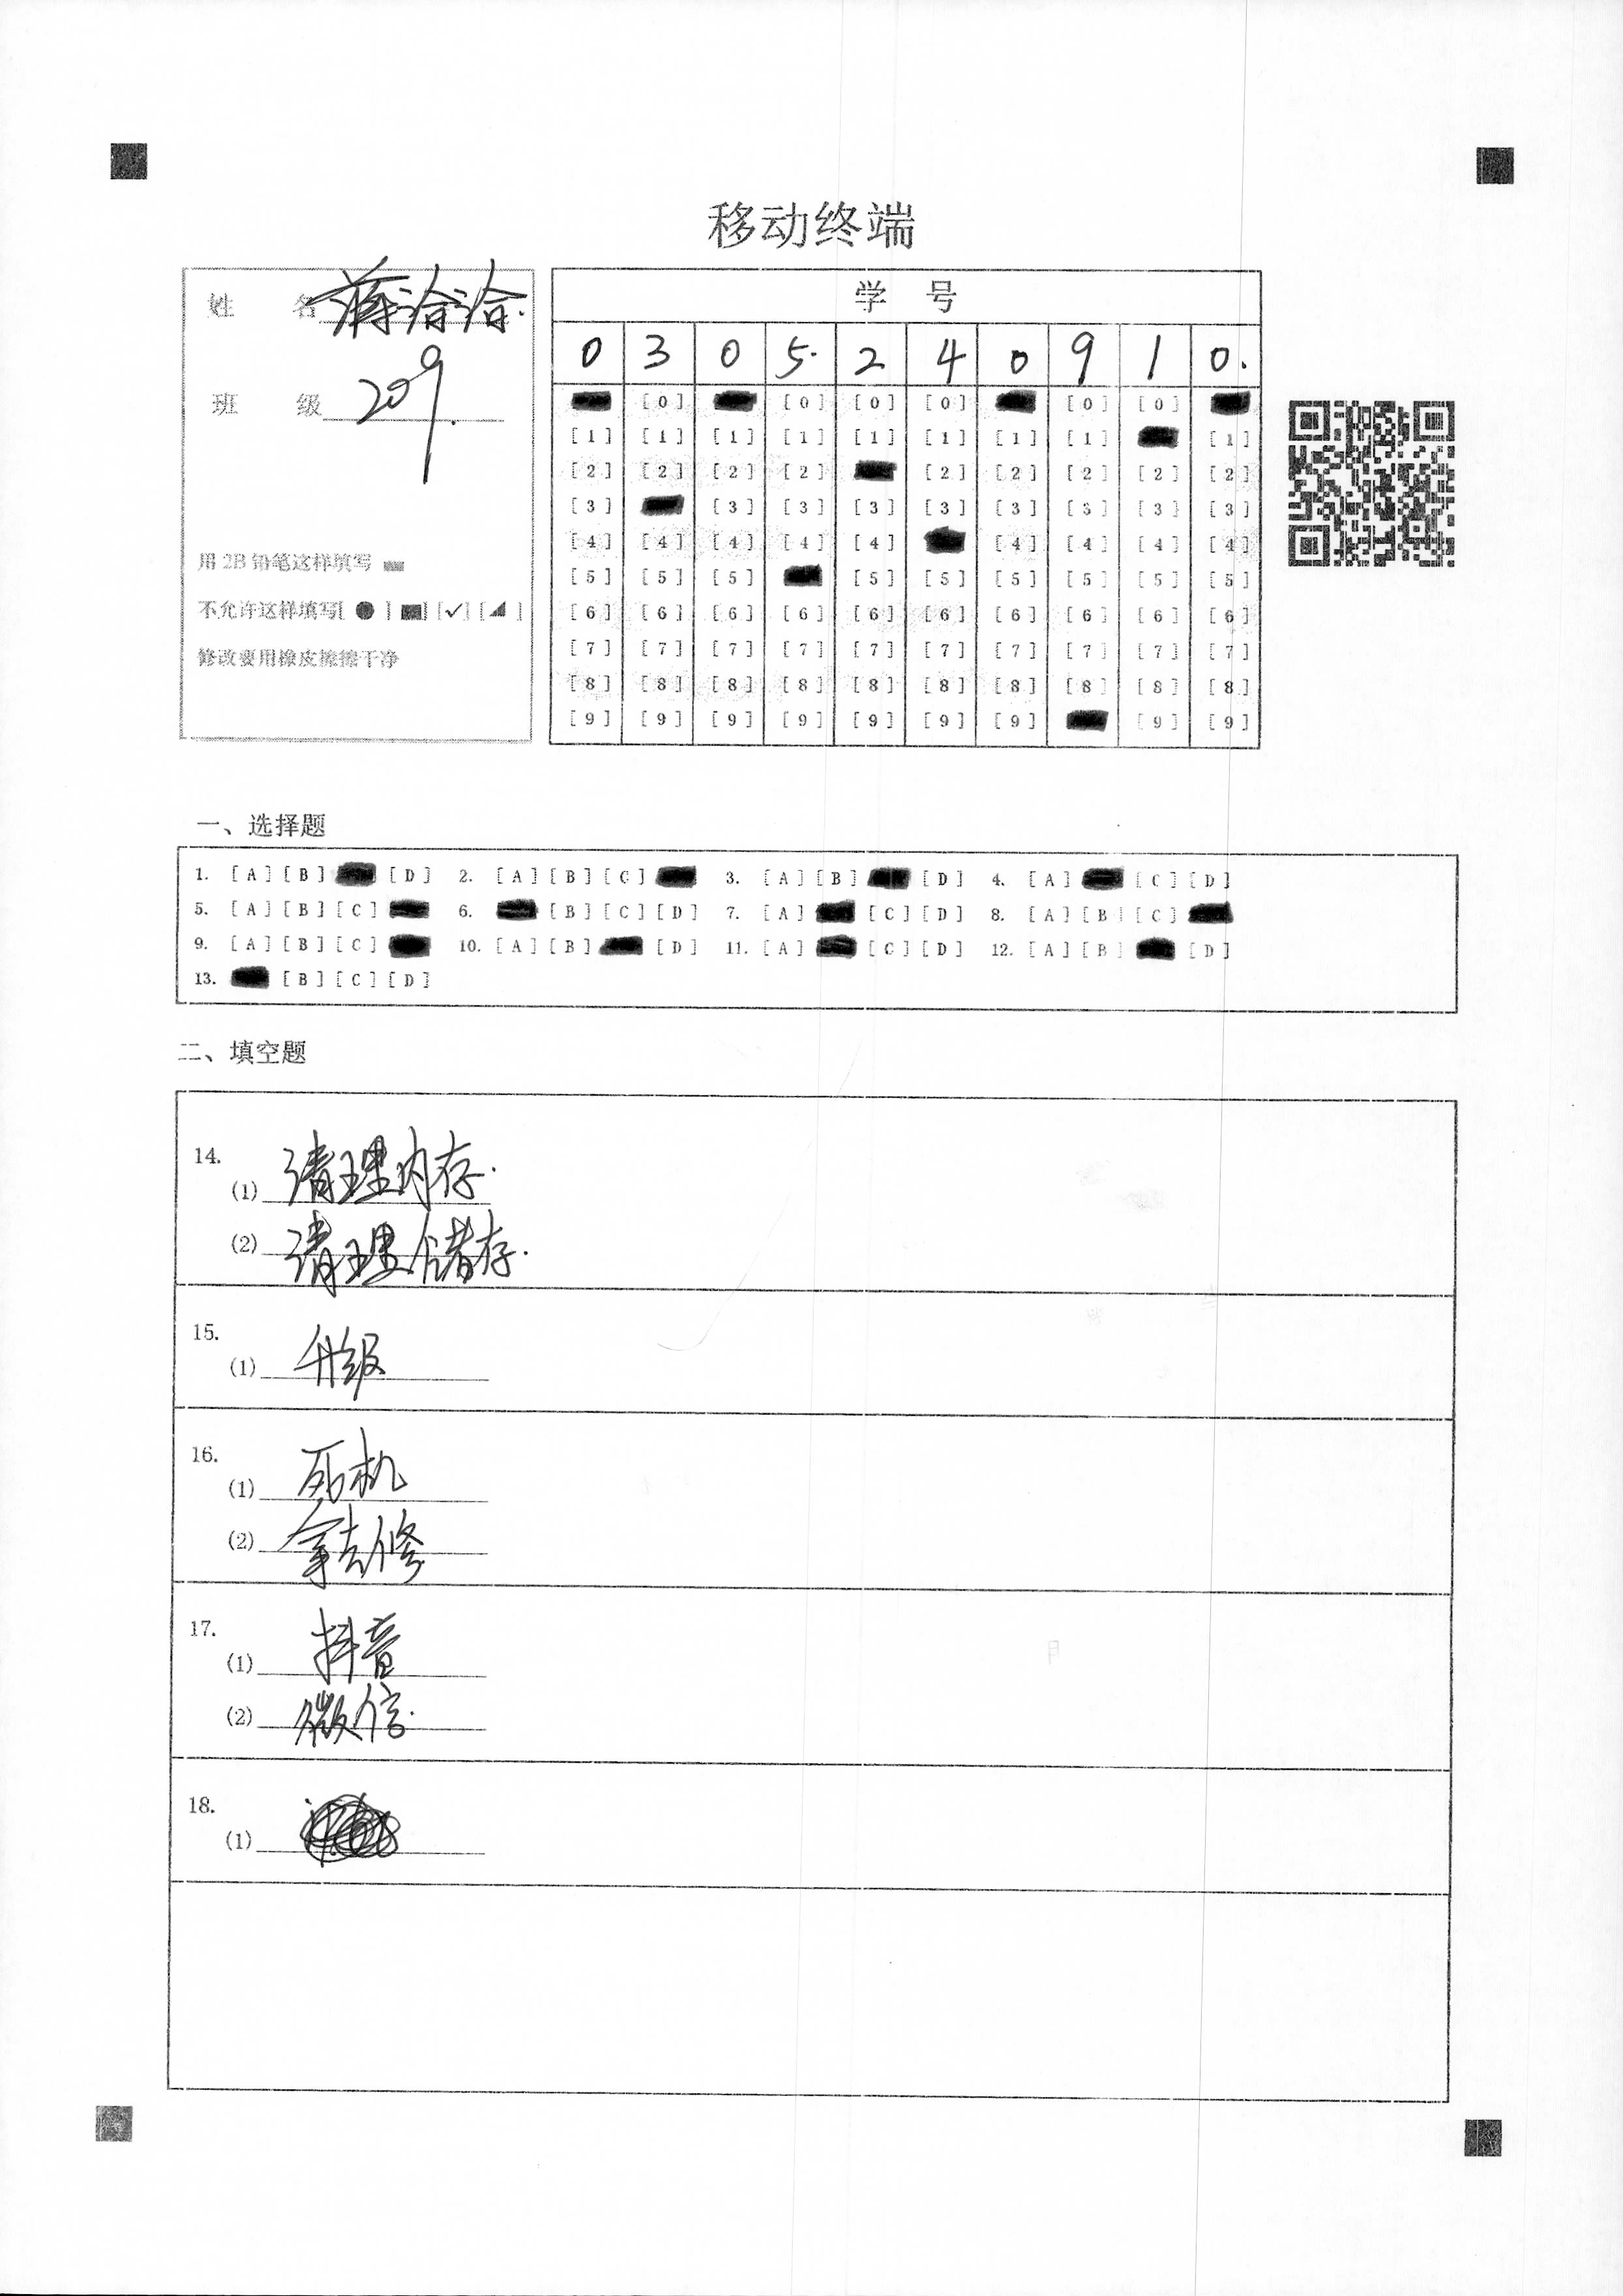 移动终端
姓 名 蒋洽洽.
班 级 209.
用 2B 铅笔这样填写
不允许这样填写[ ● ] [■] [✓] [◢ ]
修改要用橡皮擦擦干净
学 号
0 3 0 5. 2 4 0 9 1 0.
[0] [0] [0] [0] [0] [0]
[1] [1] [1] [1] [1] [1] [1] [1] [1]
[2] [2] [2] [2] [2] [2] [2] [2] [2]
[3] [3] [3] [3] [3] [3] [3] [3] [3]
[4] [4] [4] [4] [4] [4] [4] [4] [4]
[5] [5] [5] [5] [5] [5] [5] [5] [5]
[6] [6] [6] [6] [6] [6] [6] [6] [6] [6]
[7] [7] [7] [7] [7] [7] [7] [7] [7] [7]
[8] [8] [8] [8] [8] [8] [8] [8] [8] [8]
[9] [9] [9] [9] [9] [9] [9] [9] [9]
一、选择题
1. [A] [B] [D] 2. [A] [B] [C] 3. [A] [B] [D] 4. [A] [C] [D]
5. [A] [B] [C] 6. [B] [C] [D] 7. [A] [C] [D] 8. [A] [B] [C]
9. [A] [B] [C] 10. [A] [B] [D] 11. [A] [C] [D] 12. [A] [B] [D]
13. [B] [C] [D]
二、填空题
14.
(1) 清理内存.
(2) 清理储存.
15.
(1) 升级
16.
(1) 死机
(2) 拿去修
17.
(1) 抖音
(2) 微信.
18.
(1)